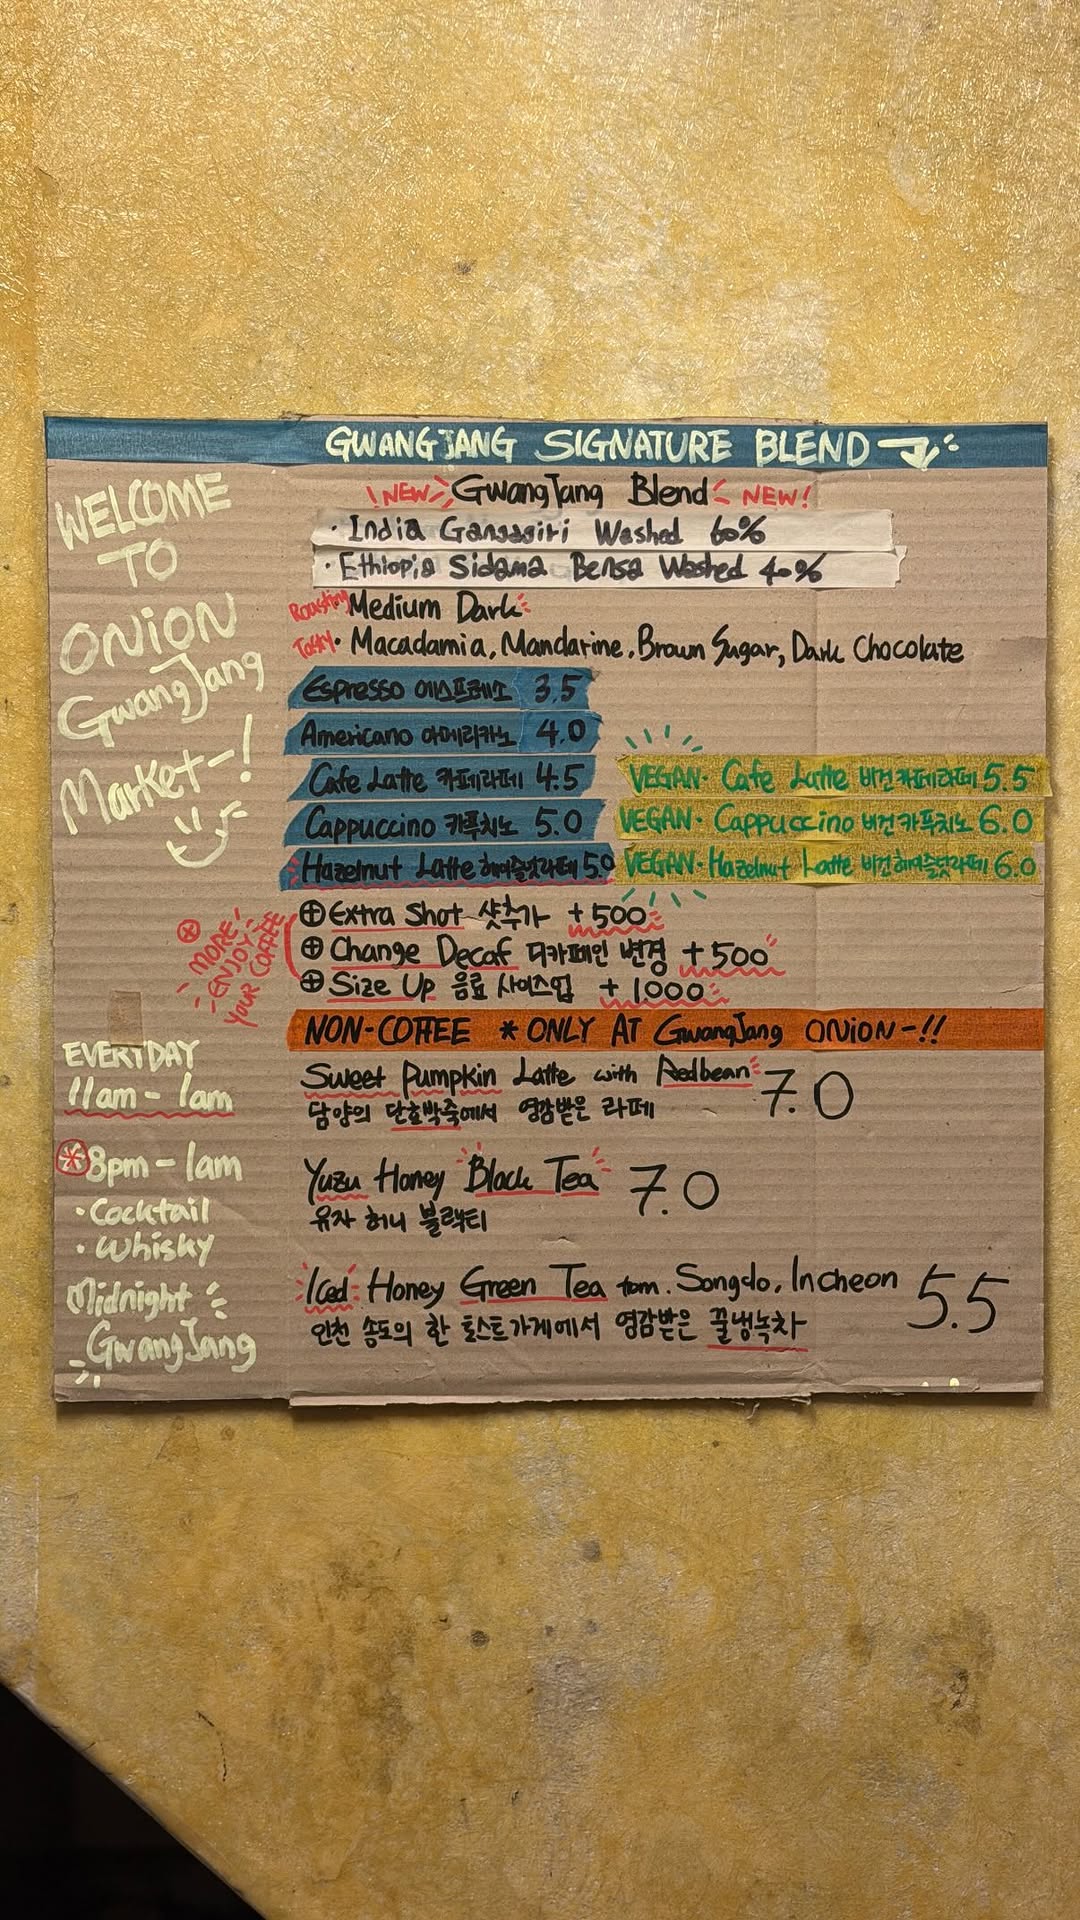 GWANGJANG SIGNATURE BLEND
WELCOME
TO
ONION
GwangJang
Market-!
!NEW GwangJang Blend NEW!
· India Gangagiri Washed 60%
· Ethiopia Sidama Bensa Washed 40%
Roasting Medium Dark
Tasty · Macadamia, Mandarine, Brown Sugar, Dark Chocolate
Espresso 에스프레소 3.5
Americano 아메리카노 4.0
Cafe Latte 카페라떼 4.5
VEGAN· Cafe Latte 비건카페라떼 5.5
Cappuccino 카푸치노 5.0
VEGAN· Cappuccino 비건카푸치노 6.0
Hazelnut Latte 헤이즐넛라떼 5.0
VEGAN· Hazelnut Latte 비건헤이즐넛라떼 6.0
MORE
ENJOY
YOUR COFFEE
⊕ Extra Shot 샷추가 +500
⊕ Change Decaf 디카페인 변경 +500
⊕ Size Up 음료 사이즈업 +1.000
NON-COFFEE * ONLY AT GwangJang ONION-!!
EVERYDAY
11am - 1am
* 8pm - 1am
· Cocktail
· Whisky
Midnight
GwangJang
Sweet Pumpkin Latte with Redbean 7.0
담양의 단호박죽에서 영감받은 라떼
Yuzu Honey Black Tea 7.0
유자 허니 블랙티
Iced Honey Green Tea from. Songdo, Incheon 5.5
인천 송도의 한 토스트가게에서 영감받은 꿀냉녹차